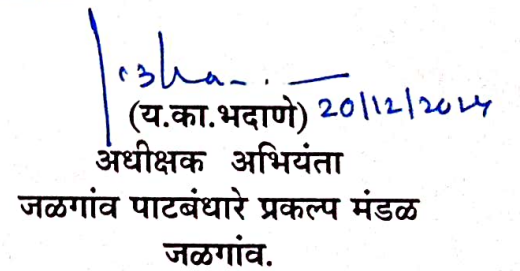 (य.का.भदाणे) 20/12/2024
अधीक्षक अभियंता
जळगांव पाटबंधारे प्रकल्प मंडळ
जळगांव.